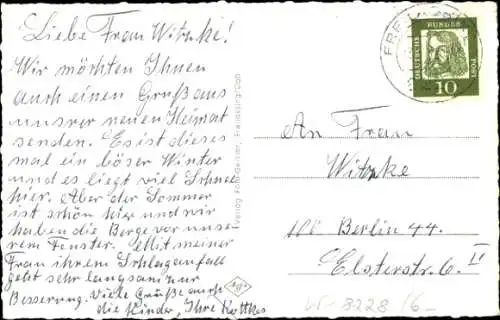 Liebe Frau Witzke!
Wir möchten Ihnen
auch einen Gruß aus
unsrer neuen Heimat
senden. Es ist dieses
mal ein böser Winter
und es liegt viel Schnee
hier. Aber der Sommer
ist schön hier und wir
haben die Berge vor unse-
rem Fenster. Mit meiner
Frau ihrem Schlaganfall
geht sehr langsam zur
Besserung. Viele Grüße auch
die Kinder, Ihre
Verlag Foto
DEUTSCHE
BUNDES
POST
10
An Frau
Witzke
100 Berlin 44.
Elsterstr. 6. II